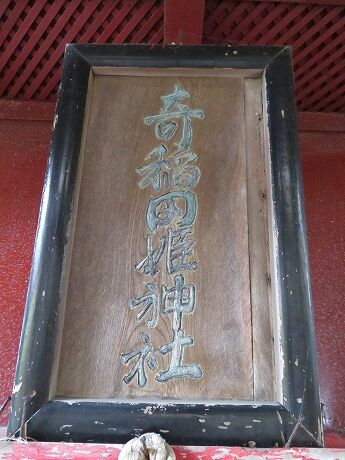 奇稲田姫神社